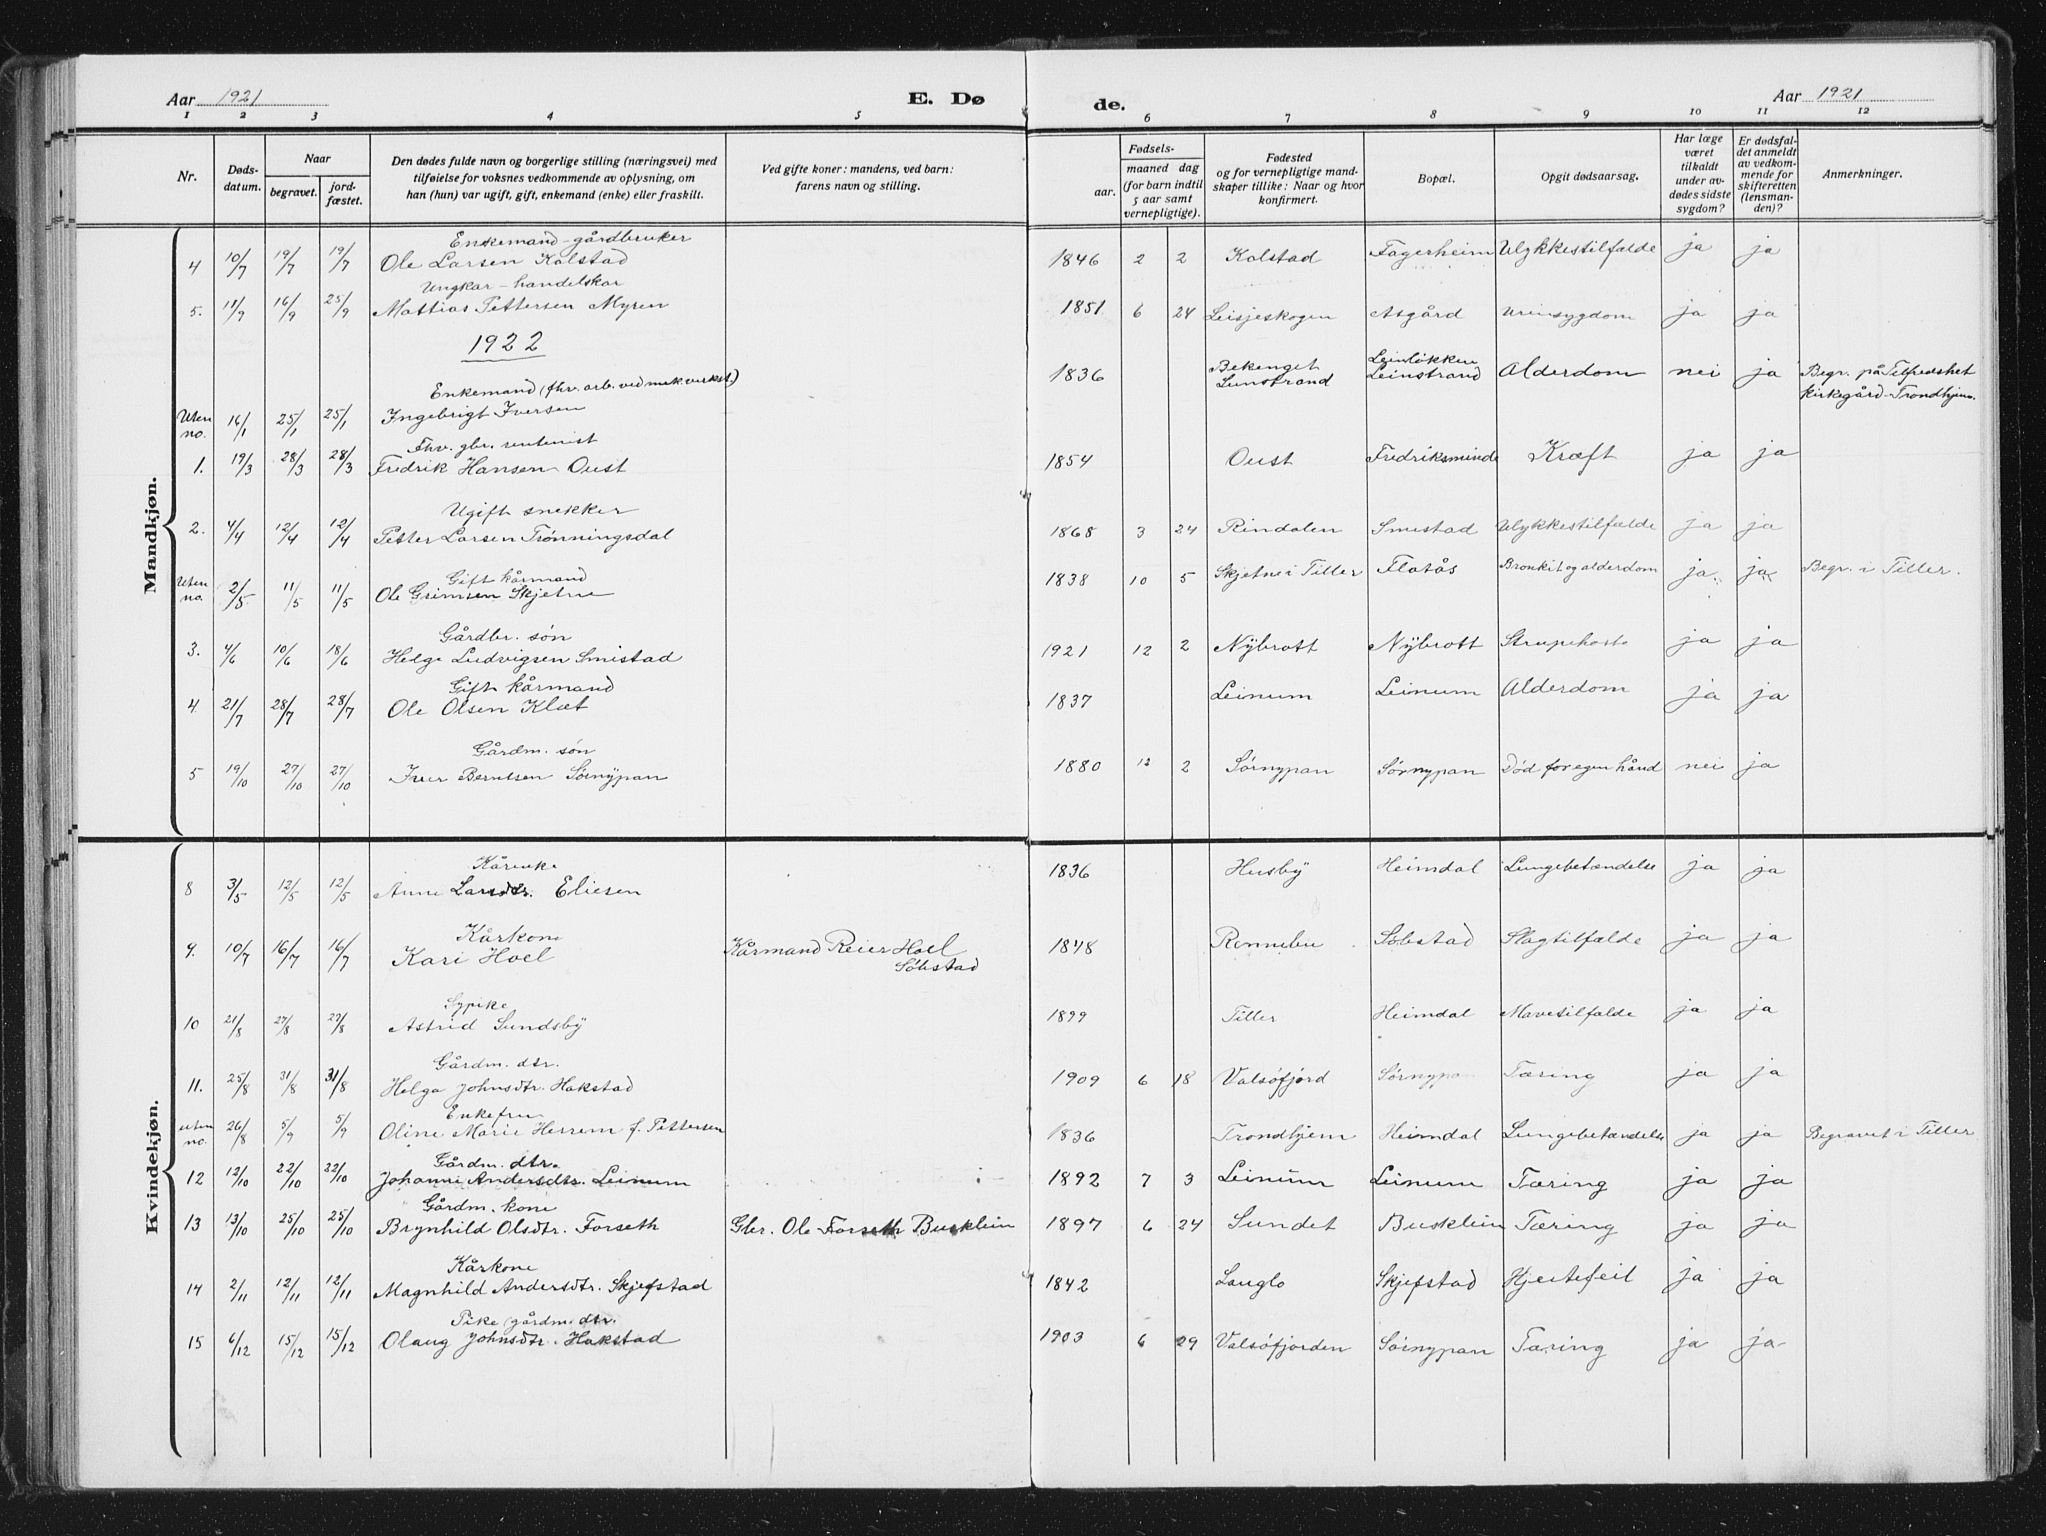 Aar 1921 E. Dø de. Aar 1921
1 2 3 4 5 6 7 8 9 10 11 12
Nr.
Døds-
datum.
Naar
begravet.
jord-
fæstet.
Den dødes fulde navn og borgerlige stilling (næringsvei) med
tilføielse for voksnes vedkommende av oplysning, om
han (hun) var ugift, gift, enkemand (enke) eller fraskilt.
Ved gifte koner: mandens, ved barn:
farens navn og stilling.
Fødsels-
aar.
maaned dag
(for barn indtil
5 aar samt
vernepligtige).
Fødested
og for vernepligtige mand-
skaper tillike: Naar og hvor
konfirmert.
Bopæl.
Opgit dødsaarsag.
Har læge
været
tilkaldt
under av-
dødes sidste
sygdom?
Er dødsfal-
det anmeldt
av vedkom-
mende for
skifteretten
(lensman-
den)?
Anmerkninger.
Mandkjøn.
Enkemand - gårdbruker
4 10/7 19/7 19/7 Ole Larsen Kolstad 1846 2 2 Kolstad Fagerheim Ulykkestilfælde ja ja
Ungkar - handelskar
5. 11/9 16/9 25/9 Mattias Pettersen Myren 1851 6 24 Leisjeskogen Asgård Urinsygdom ja ja
1922
Enkemand (fhv. arb. ved mek. verkst.)
Uten no. 16/1 25/1 25/1 Ingebrigt Iversen 1836 Bekenget Leinstrand Leinløkken Leinstrand Alderdom nei ja Begr. på Tilfredshet kirkegård - Trondhjem.
Fhv. gbr. rentenist
1. 19/3 28/3 28/3 Fredrik Hansen Oust 1854 Oust Fredriksminde Kræft ja ja
Ugift snekker
2. 4/4 12/4 12/4 Petter Larsen Trønningsdal 1868 3 24 Rindalen Smestad Ulykkestilfælde ja ja
Gift kårmand
Uten no. 2/5 11/5 11/5 Ole Grimsen Skjetne 1838 10 5 Skjetne i Tiller Flatås Bronkit og alderdom ja ja Begr. i Tiller.
Gårdbr. søn
3. 4/6 10/6 18/6 Helge Ludvigsen Smistad 1921 12 2 Nÿbrott Nÿbrott Strupehoste ja ja
Gift kårmand
4 21/7 28/7 28/7 Ole Olsen Klæt 1837 Leinum Leinum Alderdom ja ja
Gårdm. søn
5 19/10 27/10 27/10 Iver Berntsen Sørnÿpan 1880 12 2 Sørnypan Sørnypan Død for egen hånd nei ja
Kvindekjøn.
Kårenke
8 3/5 12/5 12/5 Anne Larsdtr. Eliesen 1836 Husby Heimdal Lungebetændelse ja ja
Kårkone
9. 10/7 16/7 16/7 Kari Hoel Kårmand Reier Hoel Søbstad 1848 Rennebu Søbstad Slagtilfælde ja ja
Sypike
10 21/8 27/8 27/8 Astrid Sundsby 1899 Tiller Heimdal Mavetilfælde ja ja
Gårdm. dtr.
11. 25/8 31/8 31/8 Helga Johnsdtr. Hakstad 1909 6 18 Valsøfjord Sørnypan Tæring ja ja
Enkefru
uten no. 26/8 5/9 5/9 Oline Marie Herrem f. Pettersen 1836 Trondhjem Heimdal Lungebetændelse ja ja Begravet i Tiller
Gårdm. dtr.
12 12/10 22/10 22/10 Johanne Andersdtr. Leinum 1892 7 3 Leinum Leinum Tæring ja ja
Gårdm. kone
13 13/10 25/10 25/10 Brynhild Olsdtr. Forseth Gbr. Ole Forseth Busklein 1897 6 24 Sundet Busklein Tæring ja ja
Kårkone
14 2/11 12/11 12/11 Magnhild Andersdtr. Skjefstad 1842 Langlo Skjefstad Hjertefeil ja ja
Pike gårdm. dtr.
15 6/12 15/12 15/12 Olaug Johnsdtr. Hakstad 1903 6 29 Valsøfjorden Sørnypan Tæring ja ja